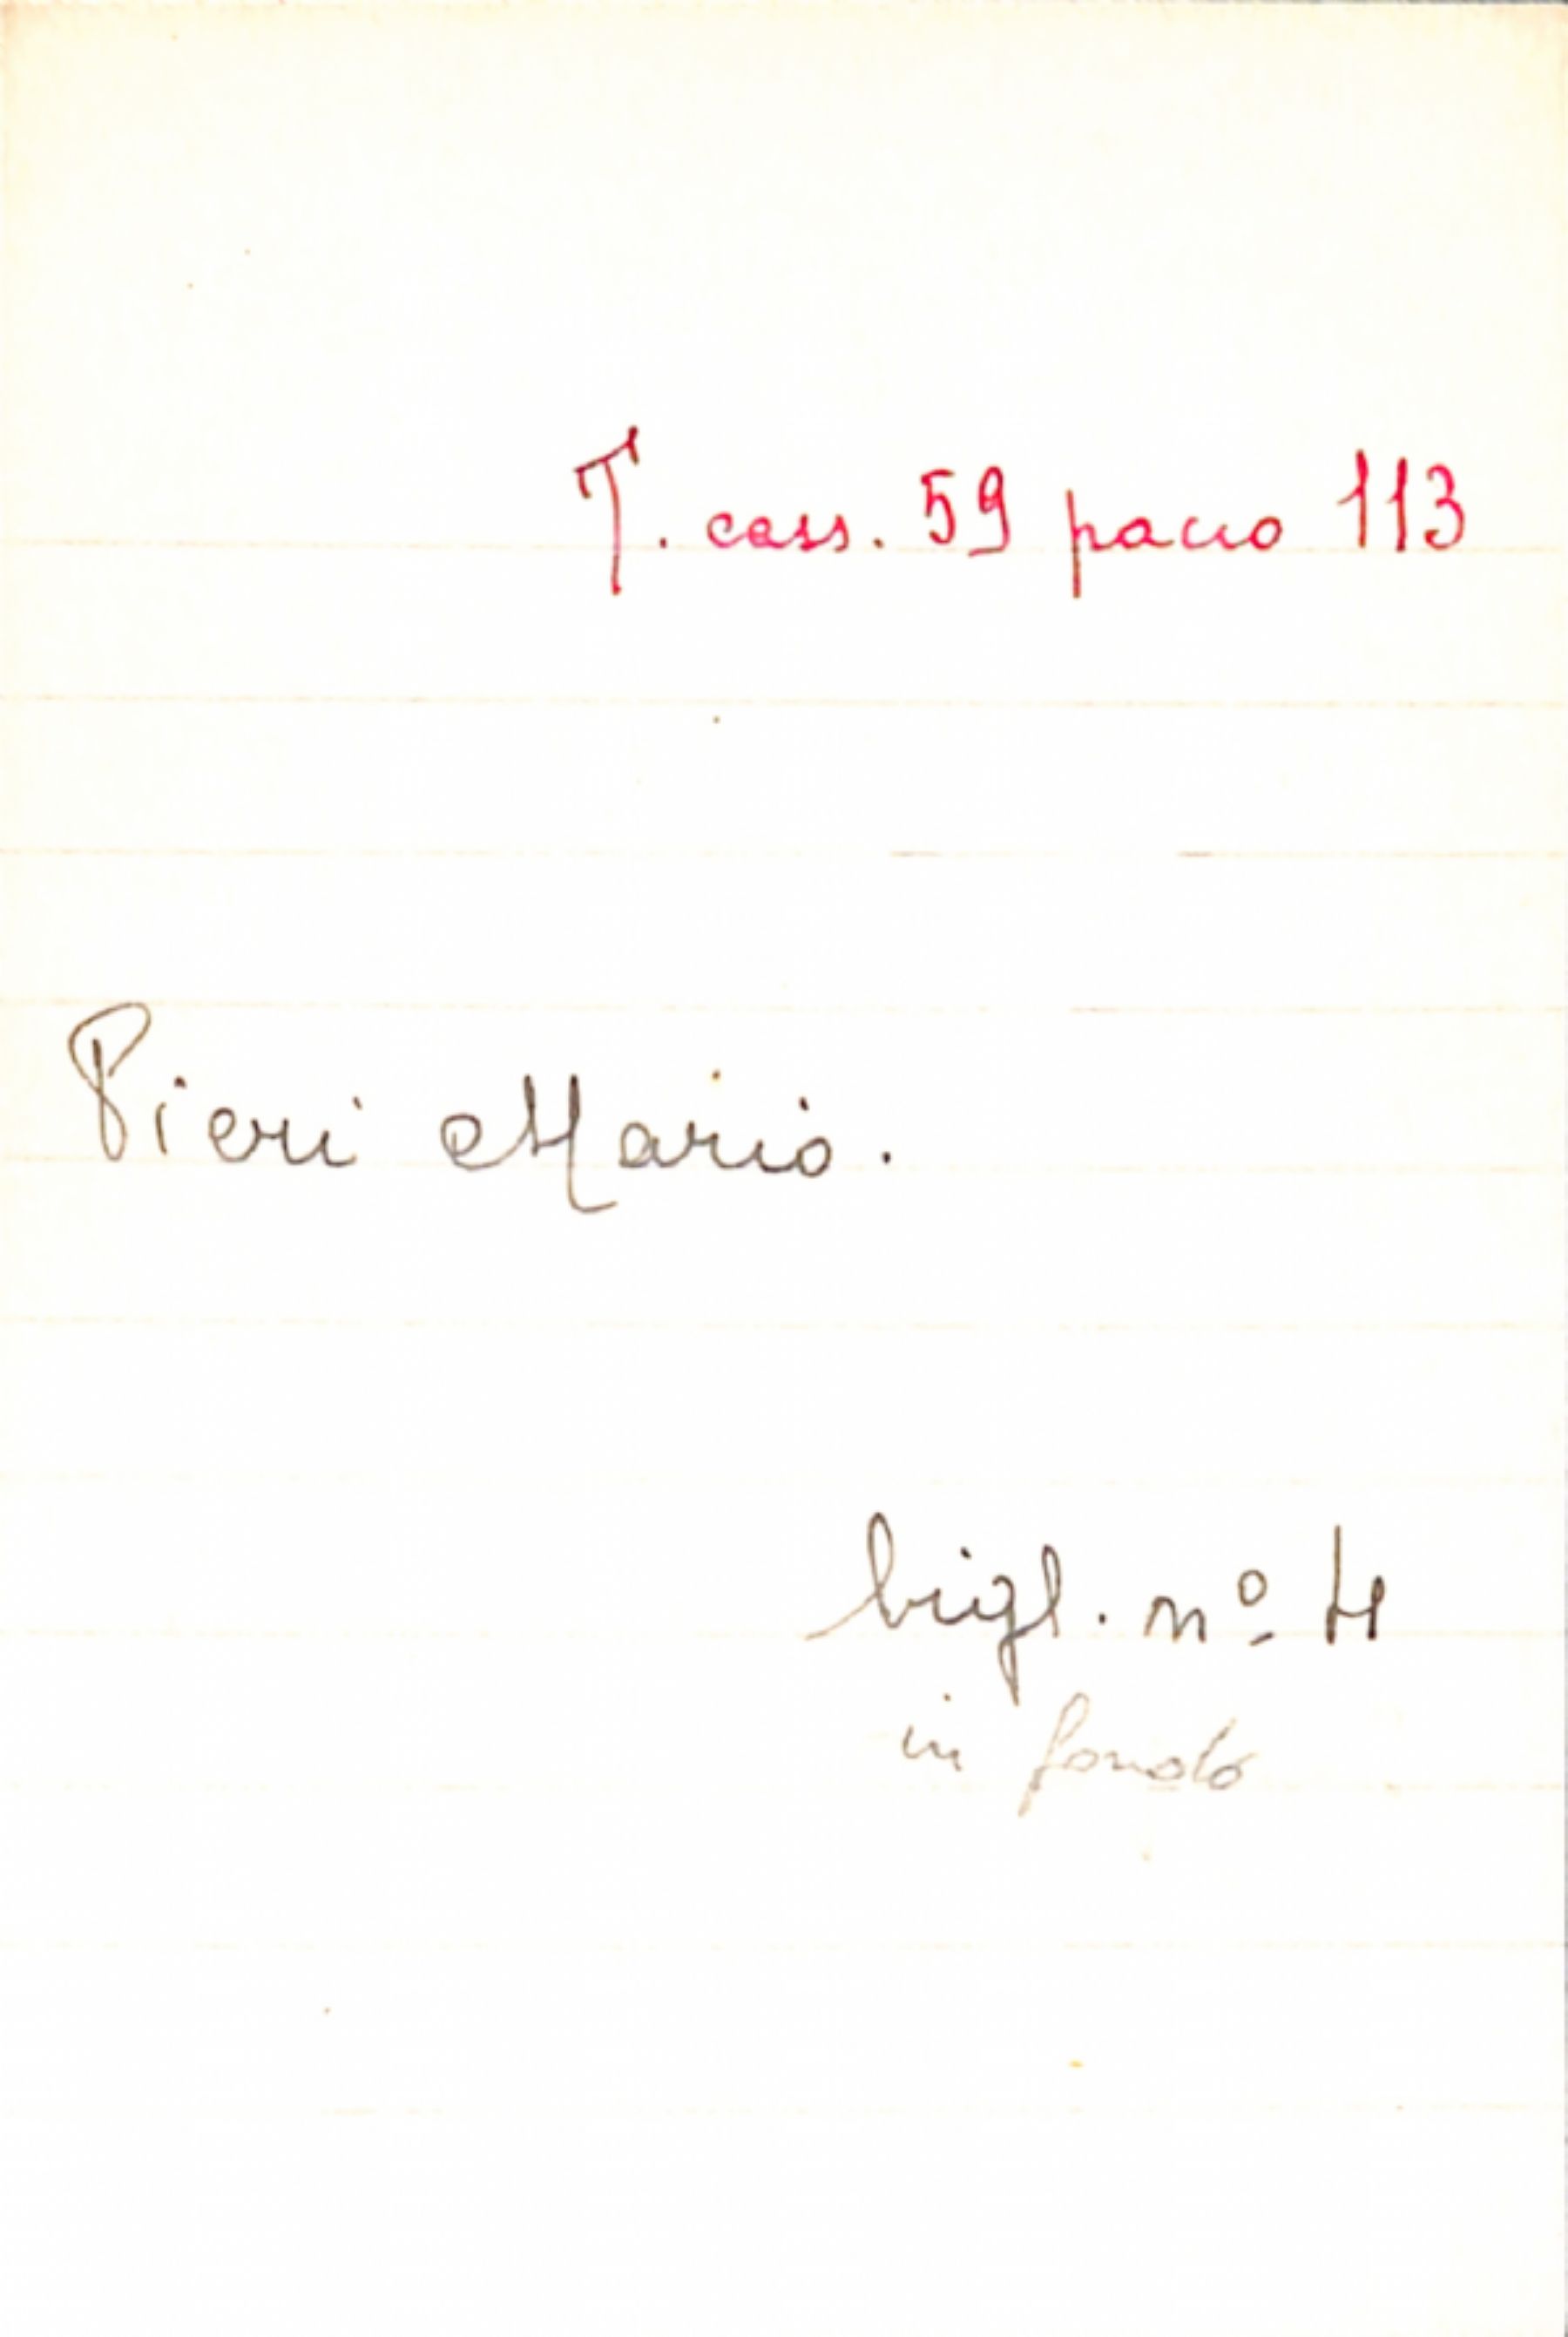 T. cass. 59 pacco 113
Pieri Mario.
bigl. nº 4
in fondo